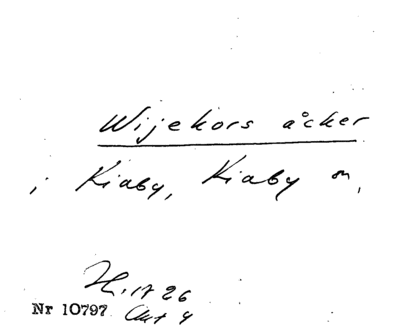 Wijekors åcker
i Kiaby, Kiaby sn,
26
Nr 10797 4